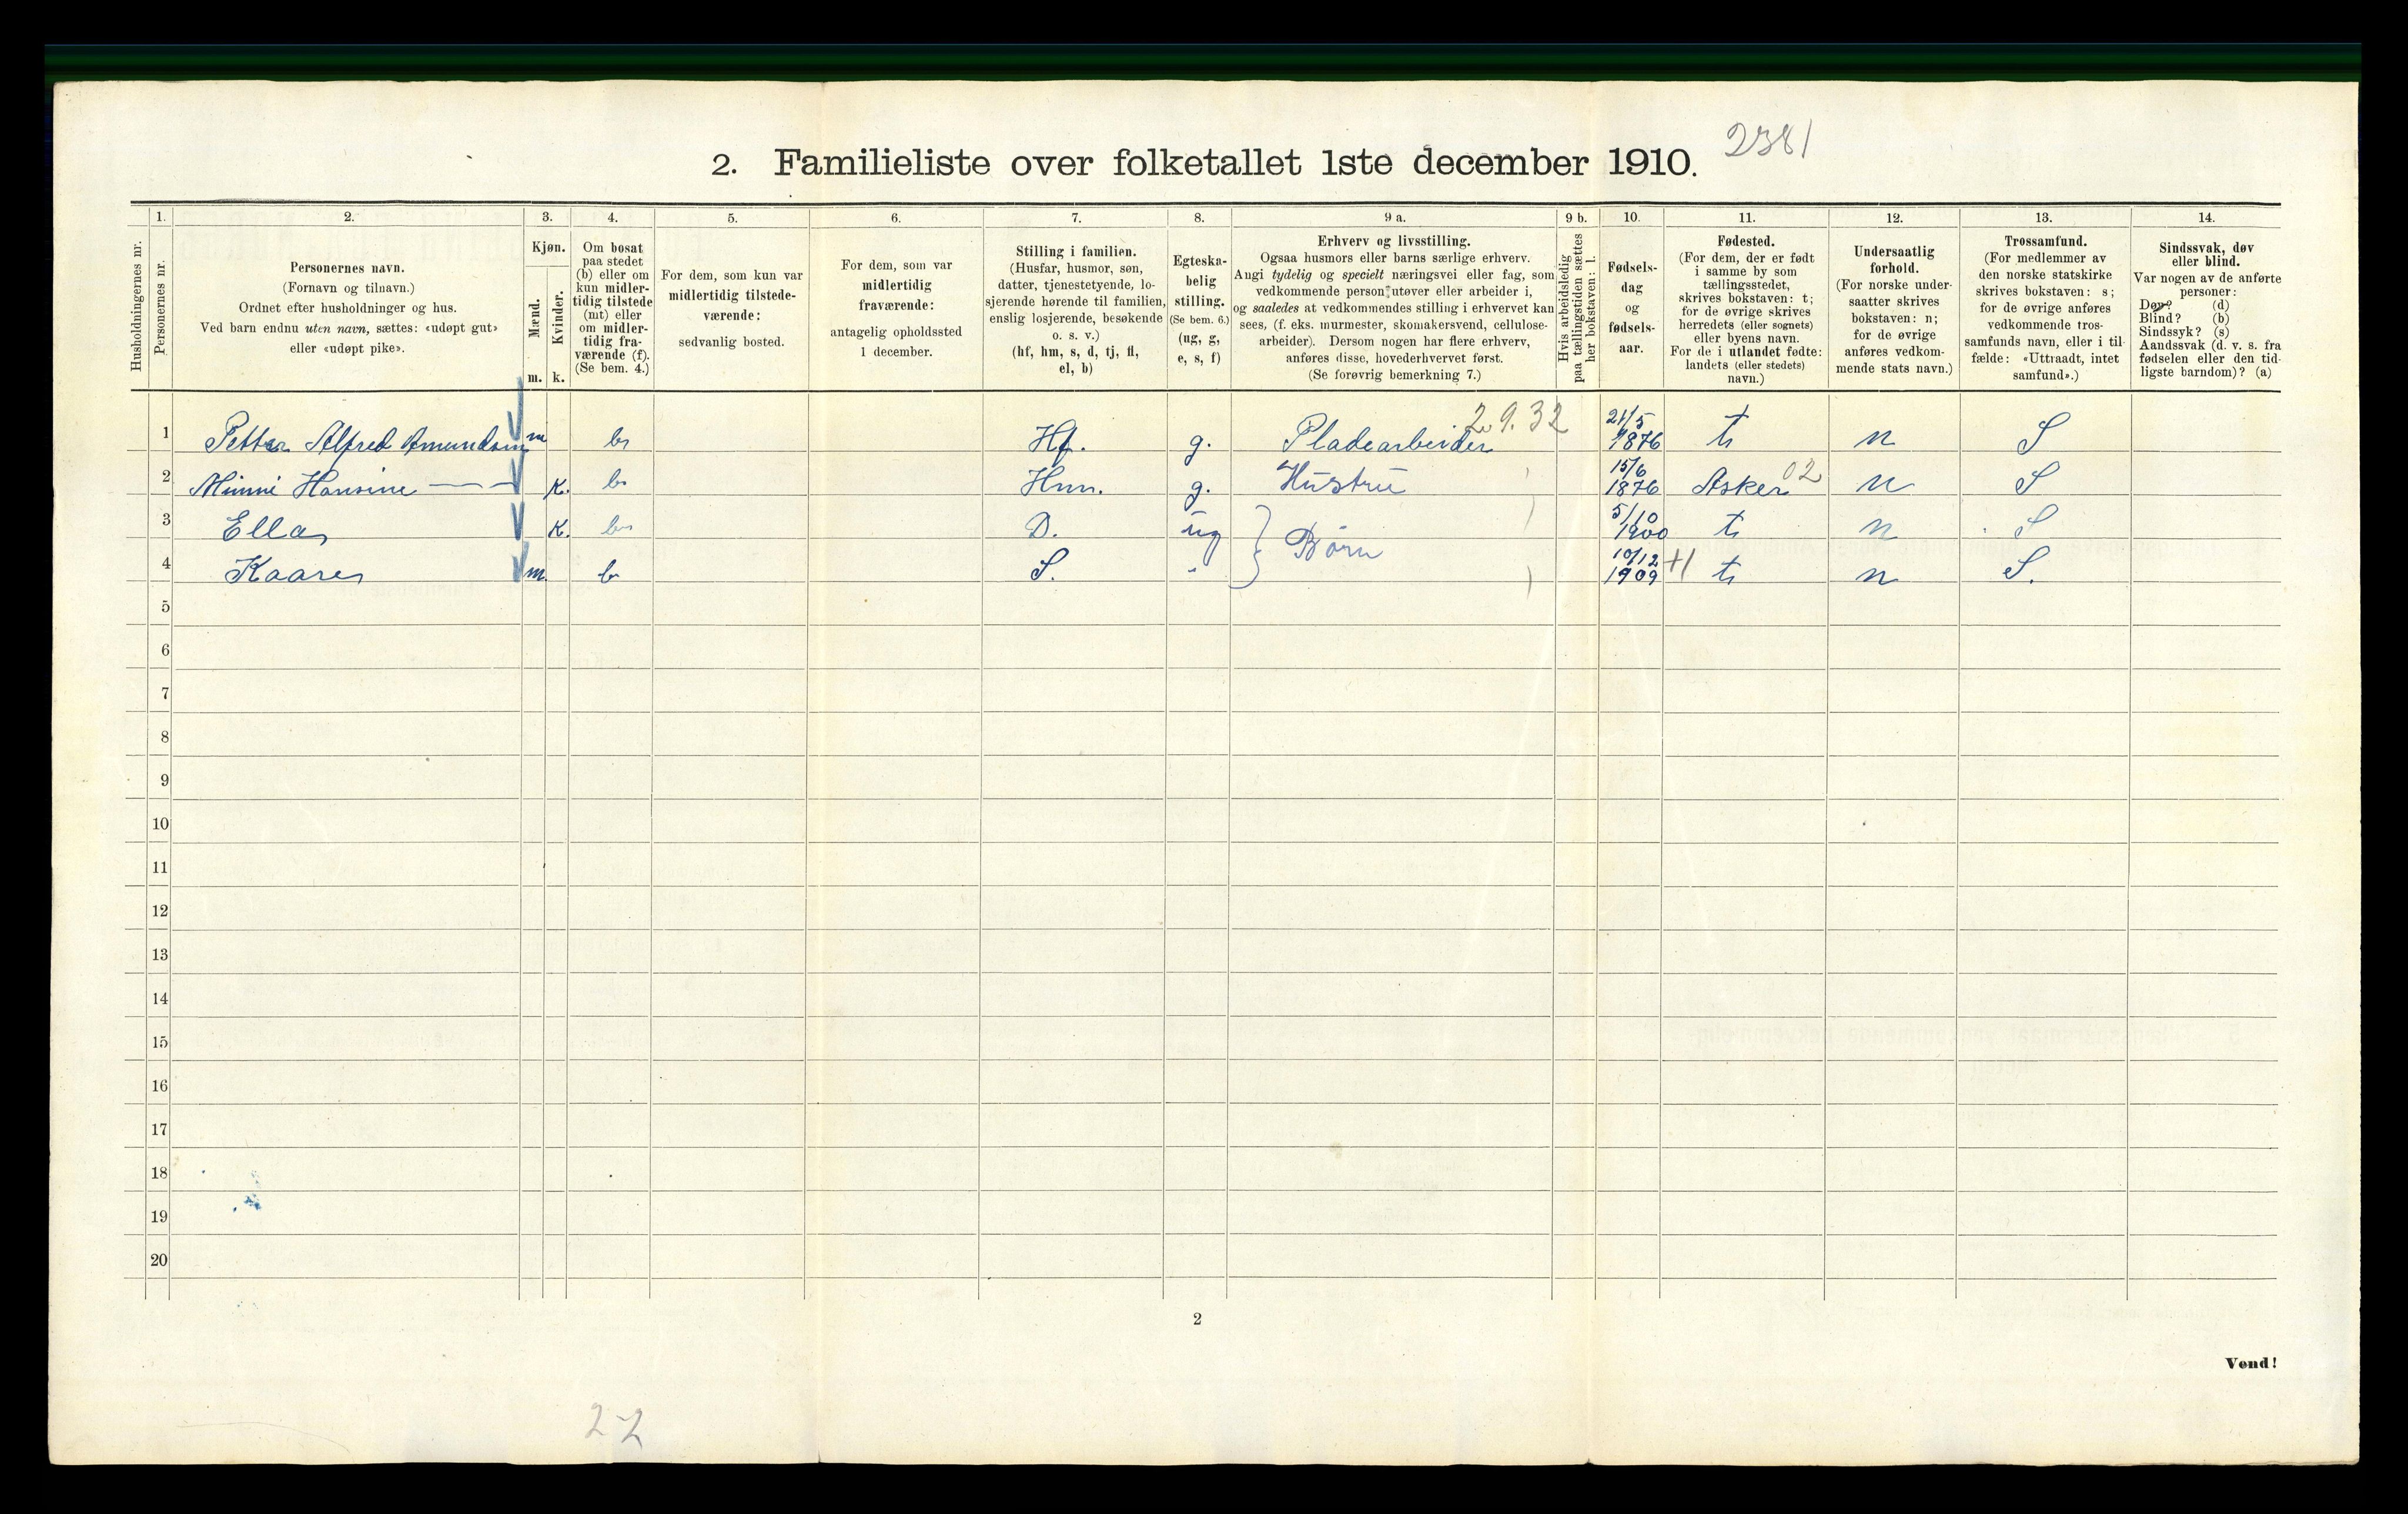 2381
2. Familieliste over folketallet 1ste december 1910.
Husholdningernes nr.
1. Personernes nr.
2. Personernes navn.
(Fornavn og tilnavn.)
Ordnet efter husholdninger og hus.
Ved barn endnu uten navn, sættes: «udøpt gut»
eller «udøpt pike».
3. Kjøn.
Mænd. m.
Kvinder. k.
4. Om bosat
paa stedet
(b) eller om
kun midler-
tidig tilstede
(mt) eller
om midler-
tidig fra-
værende (f).
(Se bem. 4.)
5. For dem, som kun var
midlertidig tilstede-
værende:
sedvanlig bosted.
6. For dem, som var
midlertidig
fraværende:
antagelig opholdssted
1 december.
7. Stilling i familien.
(Husfar, husmor, søn,
datter, tjenestetyende, lo-
sjerende hørende til familien,
enslig losjerende, besøkende
o. s. v.)
(hf, hm, s, d, tj, fl,
el, b)
8. Egteska-
belig
stilling.
(Se bem. 6.)
(ug, g,
e, s, f)
9 a. Erhverv og livsstilling.
Ogsaa husmors eller barns særlige erhverv.
Angi tydelig og specielt næringsvei eller fag, som
vedkommende person utøver eller arbeider i,
og saaledes at vedkommendes stilling i erhvervet kan
sees, (f. eks. murmester, skomakersvend, cellulose-
arbeider). Dersom nogen har flere erhverv,
anføres disse, hovederhvervet først.
(Se forøvrig bemerkning 7.)
9 b. Hvis arbeidsledig
paa tællingstiden sættes
her bokstaven: l.
10. Fødsels-
dag
og
fødsels-
aar.
11. Fødested.
(For dem, der er født
i samme by som
tællingsstedet,
skrives bokstaven: t;
for de øvrige skrives
herredets (eller sognets)
eller byens navn.
For de i utlandet fødte:
landets (eller stedets)
navn.)
12. Undersaatlig
forhold.
(For norske under-
saatter skrives
bokstaven: n;
for de øvrige
anføres vedkom-
mende stats navn.)
13. Trossamfund.
(For medlemmer av
den norske statskirke
skrives bokstaven: s;
for de øvrige anføres
vedkommende tros-
samfunds navn, eller i til-
fælde: «Uttraadt, intet
samfund».)
14. Sindssvak, døv
eller blind.
Var nogen av de anførte
personer:
Døv? (d)
Blind? (b)
Sindssyk? (s)
Aandssvak (d. v. s. fra
fødselen eller den tid-
ligste barndom)? (a)
1 Petter Alfred Amundsen m b Hf. g. Pladearbeider 2.9.32 21/5 1876 t n S
2 Minni Hansine — — K. b Hm. g. Hustru 15/6 1876 Asker 02 n S
3 Ella K. b D. ug } Børn 5/10 1900 t n S
4 Kaare m. b S. " 10/12 1909 +1 t n S.
5
6
7
8
9
10
11
12
13
14
15
16
17
18
19
20
2
Vend!
2-2